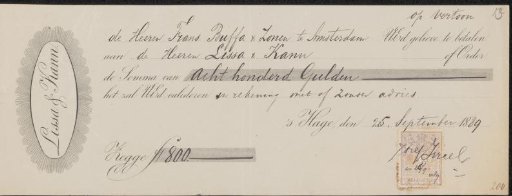 op vertoon 13
de Heeren Frans Buffa & Zonen te Amsterdam WEd. gelieve te betalen
aan de Heeren Lissa & Kann of Order
de Somma van Acht honderd Gulden
het zal WEd. valideren in rekening met of zonder advies
's Hage, den 25 September 1889
Lissa & Kann
Zegge f 800
Jozef Israel
200